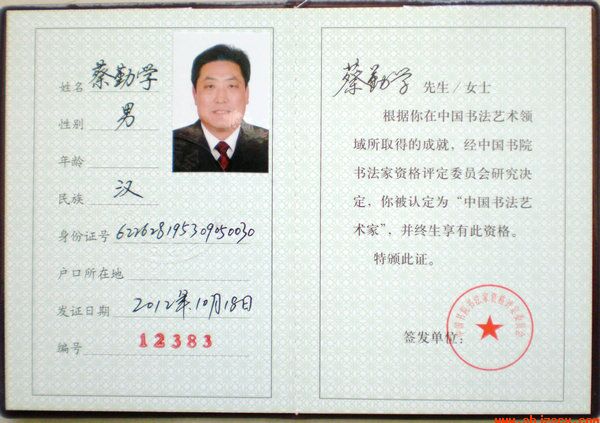 姓名 蔡勤学
性别 男
年龄
民族 汉
身份证号 622628195309050030
户口所在地
发证日期 2012年10月18日
编号 12383
蔡勤学 先生/女士
根据你在中国书法艺术领
域所取得的成就，经中国书院
书法家资格评定委员会研究决
定，你被认定为“中国书法艺
术家”，并终生享有此资格。
特颁此证。
签发单位：
中国书院书法家资格评定委员会